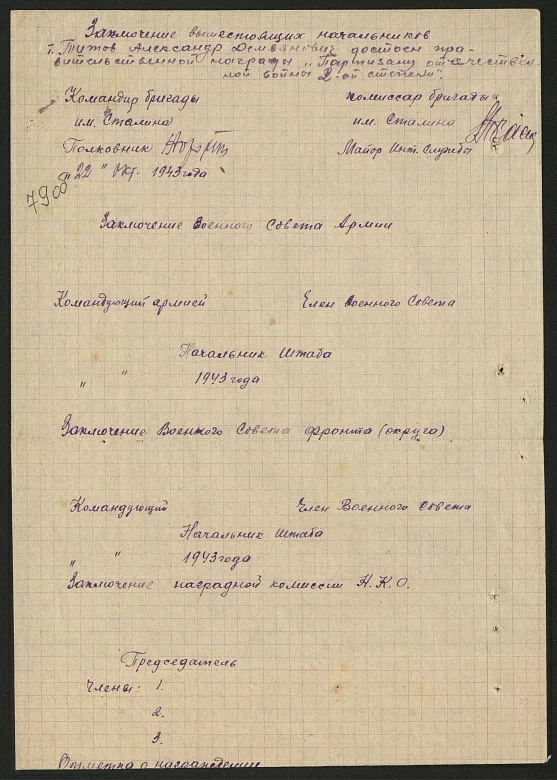 Заключение вышестоящих начальников
т. Титов Александр Демьянович достоен пра-
вительственной награды „Партизану отечествен-
ной войны 2-ой степени".
Командир бригады комиссар бригады
им. Сталина им. Сталина
Полковник Майор Инт. Службы
"22" Окт. 1943 года
7908
Заключение Военного Совета Армии
Командующий армией Член Военного Совета
Начальник Штаба
" " 1943 года
Заключение Военного Совета фронта (округа)
Командующий Член Военного Совета
Начальник Штаба
" " 1943 года
Заключение наградной комиссии Н.К.О.
Председатель
Члены: 1.
2.
3.
Отметка о награждении